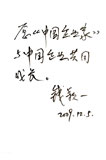 愿《中国企业家》
与中国企业共同
成长。
钱颖一
2009.12.5.